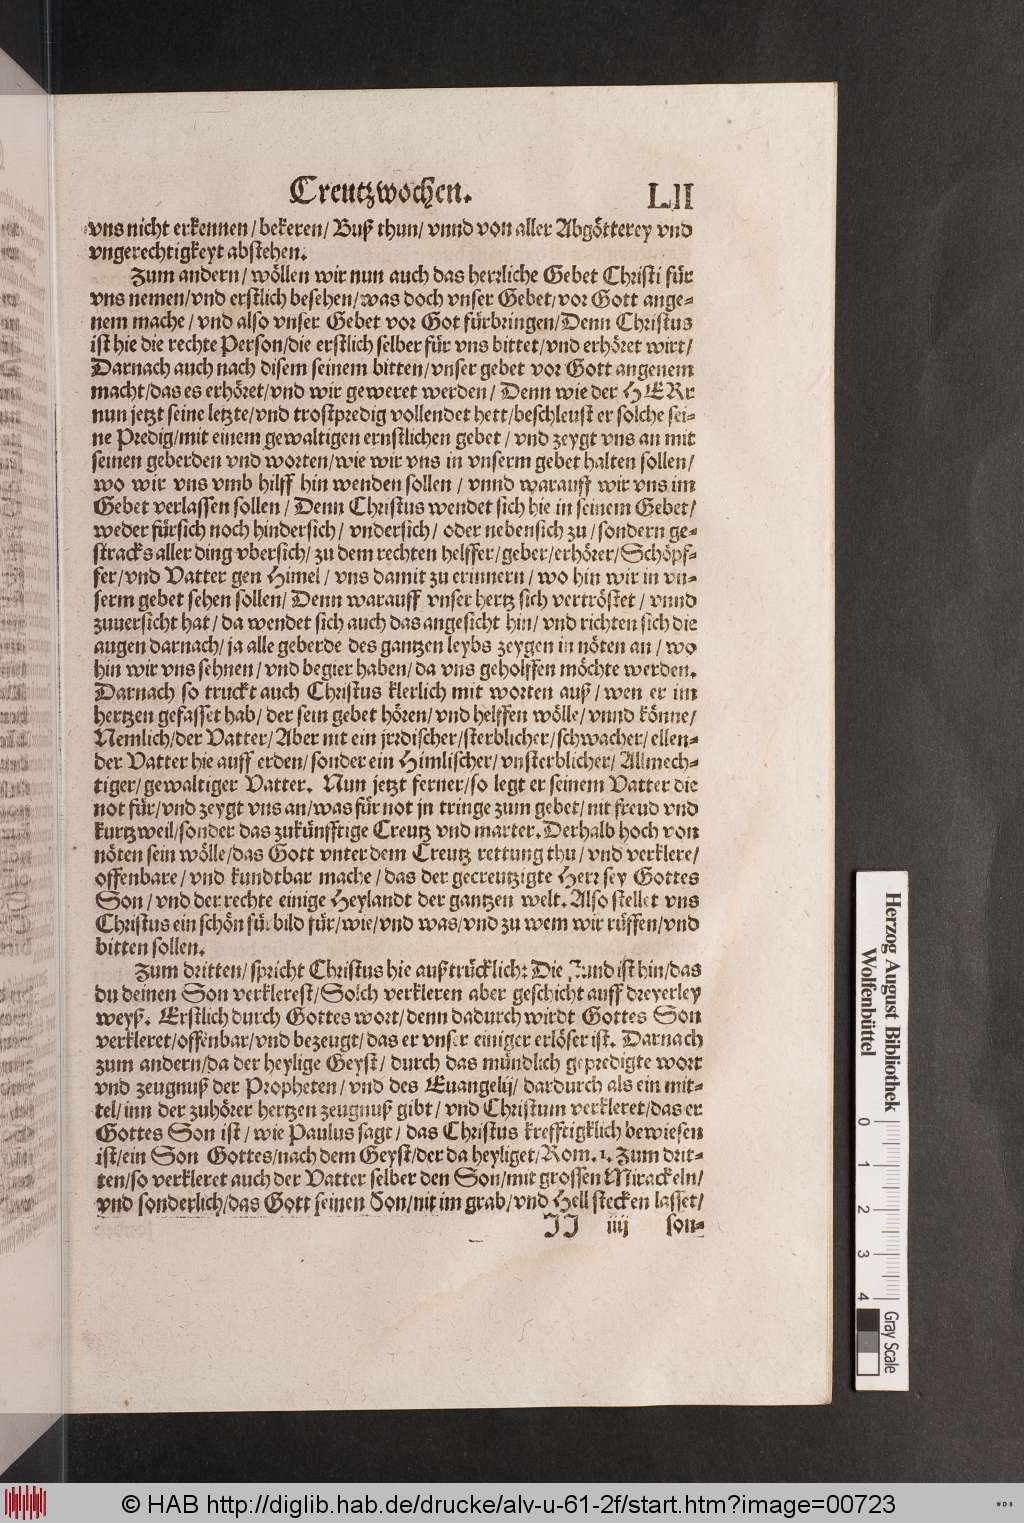 Creutzwochen. LII
vns nicht erkennen / bekeren / Buß thun / vnnd von aller Abgötterey vnd
vngerechtigkeyt abstehen.
Zum andern / wöllen wir nun auch das herrliche Gebet Christi für
vns nemen / vnd erstlich besehen / was doch vnser Gebet / vor Gott ange-
nem mache / vnd also vnser Gebet vor Got fürbringen / Denn Christus
ist hie die rechte Person / die erstlich selber für vns bittet / vnd erhöret wirt /
Darnach auch nach disem seinem bitten / vnser gebet vor Gott angenem
macht / das es erhöret / vnd wir geweret werden / Denn wie der HERr
nun jetzt seine letzte / vnd trostpredig vollendet hett / beschleust er solche sei-
ne Predig / mit einem gewaltigen ernstlichen gebet / vnd zeygt vns an mit
seinen geberden vnd worten / wie wir vns in vnserm gebet halten sollen /
wo wir vns vmb hilff hin wenden sollen / vnnd warauff wir vns im
Gebet verlassen sollen / Denn Christus wendet sich hie in seinem Gebet /
weder fürsich noch hindersich / vndersich / oder nebensich zu / sondern ge-
stracks aller ding vbersich / zu dem rechten helffer / geber / erhörer / Schöpf-
fer / vnd Vatter gen Himel / vns damit zu erinnern / wo hin wir in vn-
serm gebet sehen sollen / Denn warauff vnser hertz sich vertröstet / vnnd
zuuersicht hat / da wendet sich auch das angesicht hin / vnd richten sich die
augen darnach / ja alle geberde des gantzen leybs zeygen in nöten an / wo
hin wir vns sehnen / vnd begier haben / da vns geholffen möchte werden.
Darnach so truckt auch Christus klerlich mit worten auß / wen er im
hertzen gefasset hab / der sein gebet hören / vnd helffen wölle / vnnd könne /
Nemlich / der Vatter / Aber nit ein jrrdischer / sterblicher / schwacher / ellen-
der Vatter hie auff erden / sonder ein Himlischer / vnsterblicher / Allmech-
tiger / gewaltiger Vatter. Nun jetzt ferner / so legt er seinem Vatter die
not für / vnd zeygt vns an / was für not jn tringe zum gebet / nit freud vnd
kurtzweil / sonder das zukünfftige Creutz vnd marter. Derhalb hoch von
nöten sein wölle / das Gott vnter dem Creutz rettung thu / vnd verklere /
offenbare / vnd kundtbar mache / das der gecreutzigte Herr sey Gottes
Son / vnd der rechte einige Heylandt der gantzen welt. Also stellet vns
Christus ein schön fürbild für / wie / vnd was / vnd zu wem wir rüffen / vnd
bitten sollen.
Zum dritten / spricht Christus hie außtrücklich: Die stund ist hin / das
du deinen Son verklerest / Solch verkleren aber geschicht auff dreyerley
weyß. Erstlich durch Gottes wort / denn dadurch wirdt Gottes Son
verkleret / offenbar / vnd bezeugt / das er vnser einiger erlöser ist. Darnach
zum andern / da der heylige Geyst / durch das mündlich gepredigte wort
vnd zeugnuß der Propheten / vnd des Euangelij / dardurch als ein mit-
tel / inn der zuhörer hertzen zeugnuß gibt / vnd Christum verkleret / das er
Gottes Son ist / wie Paulus sagt / das Christus krefftigklich bewiesen
ist / ein Son Gottes / nach dem Geyst / der da heyliget / Rom. 1. Zum drit-
ten / so verkleret auch der Vatter selber den Son / mit grossen Mirackeln /
vnd sonderlich / das Gott seinen Son / nit im grab / vnd Hell stecken lasset /
JJ iiij son-
Herzog August Bibliothek
Wolfenbüttel
0 1 2 3 4
Gray Scale
© HAB http://diglib.hab.de/drucke/alv-u-61-2f/start.htm?image=00723